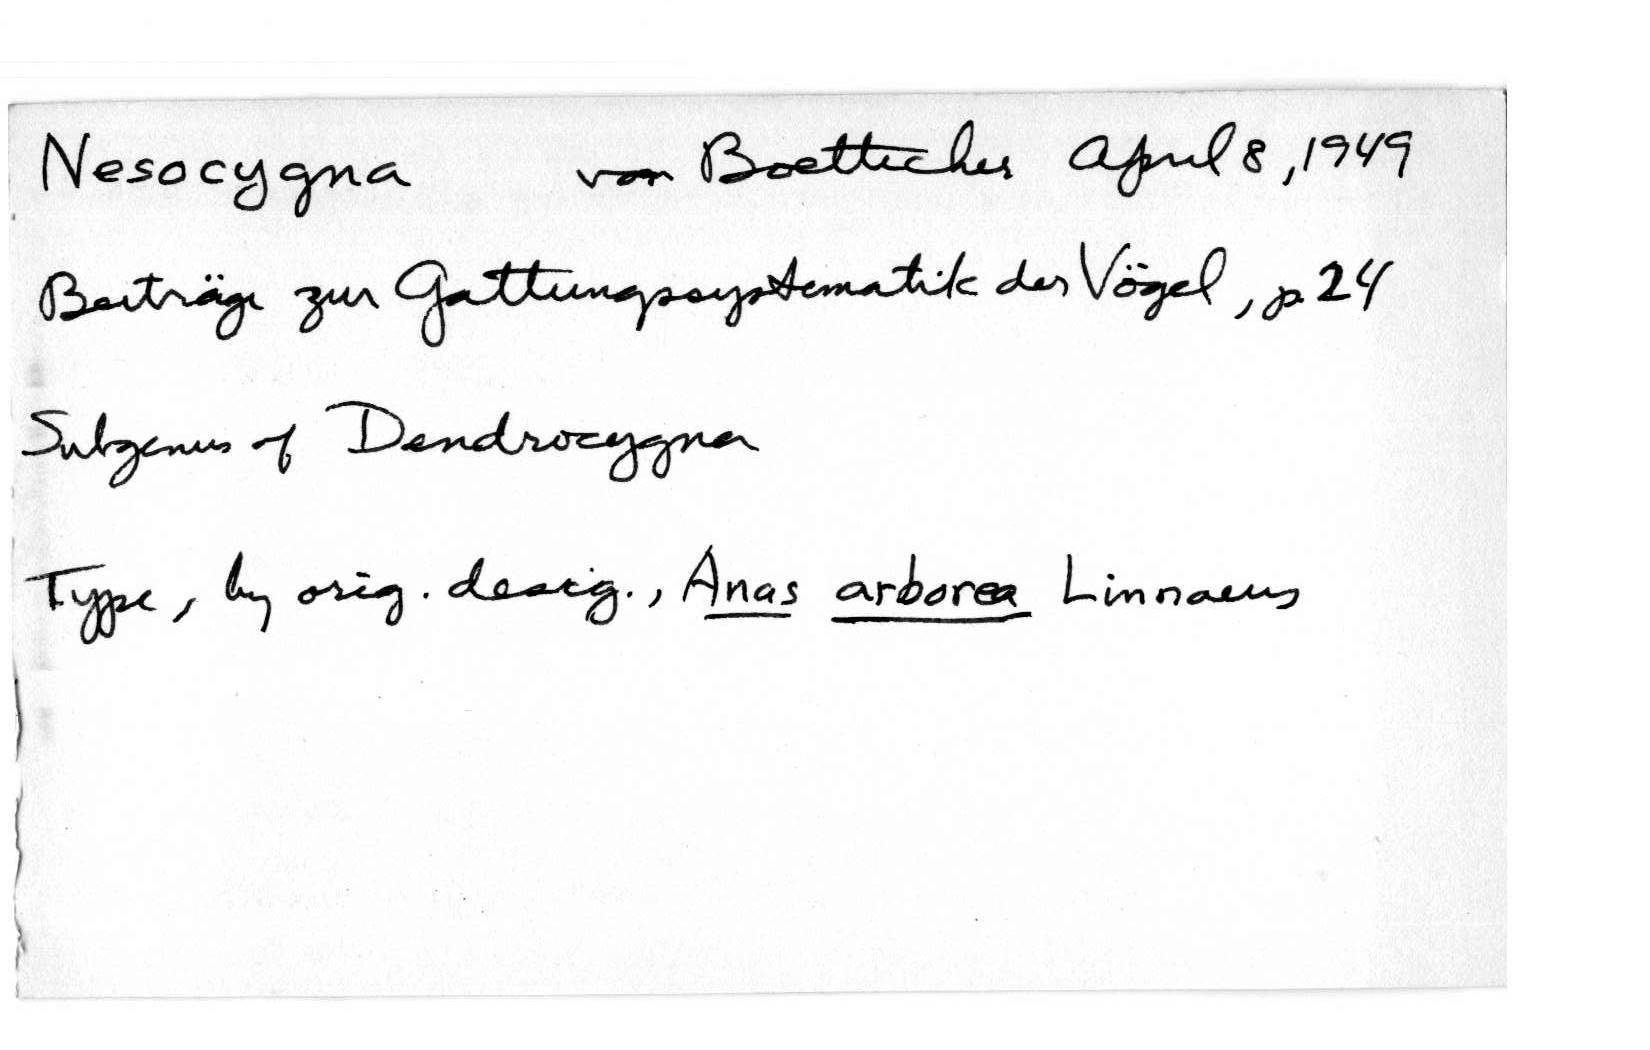 Nesocygna von Boetticher April 8, 1949
Beiträge zur Gattungssystematik der Vögel, p. 24
Subgenus of Dendrocygna
Type, by orig. desig., Anas arborea Linnaeus